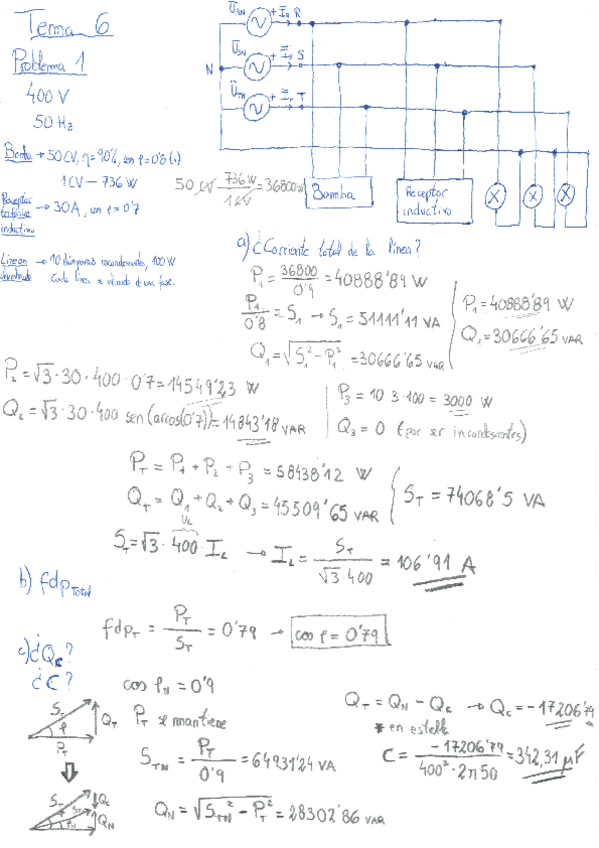 Tema 6
Problema 1
400 V
50 Hz
Bomba → 50 CV, η = 90%, cos φ = 0'8 (i)
1 CV — 736 W
Receptor trifásico inductivo → 30A, cos φ = 0'7
Líneas alumbrado → 10 lámparas incandescentes, 100 W
Cada línea se alimenta de una fase.
50 CV · 736 W / 1 CV = 36800 W
U_RN + I_R R
U_SN + I_S S
U_TN + I_T T
N
Bomba
Receptor inductivo
a) ¿Corriente total de la línea?
P₁ = 36800 / 0'9 = 40888'89 W
P₁ / 0'8 = S₁ → S₁ = 51111'11 VA
Q₁ = √(S₁² - P₁²) = 30666'65 VAR
P₁ = 40888'89 W
Q₁ = 30666'65 VAR
P₂ = √3 · 30 · 400 · 0'7 = 14549'23 W
Q₂ = √3 · 30 · 400 sen (arcos(0'7)) = 14843'18 VAR
P₃ = 10 · 3 · 100 = 3000 W
Q₃ = 0 (por ser incandescentes)
P_T = P₁ + P₂ + P₃ = 58438'12 W
Q_T = Q₁ + Q₂ + Q₃ = 45509'65 VAR
S_T = 74068'5 VA
S_T = √3 · 400 · I_L → I_L = S_T / √3 · 400 = 106'91 A
U_L
b) fdp Total
fdp_T = P_T / S_T = 0'79 → cos φ = 0'79
c) ¿Q_C?
¿C?
cos φ_N = 0'9
P_T se mantiene
S_TN = P_T / 0'9 = 64931'24 VA
Q_N = √(S_TN² - P_T²) = 28302'86 VAR
Q_T = Q_N - Q_C → Q_C = -17206'79 VAR
* en estrella
C = -17206'79 / 400² · 2π50 = 342,31 μF
S_T Q_T φ P_T
S_T Q_C φ_N Q_N